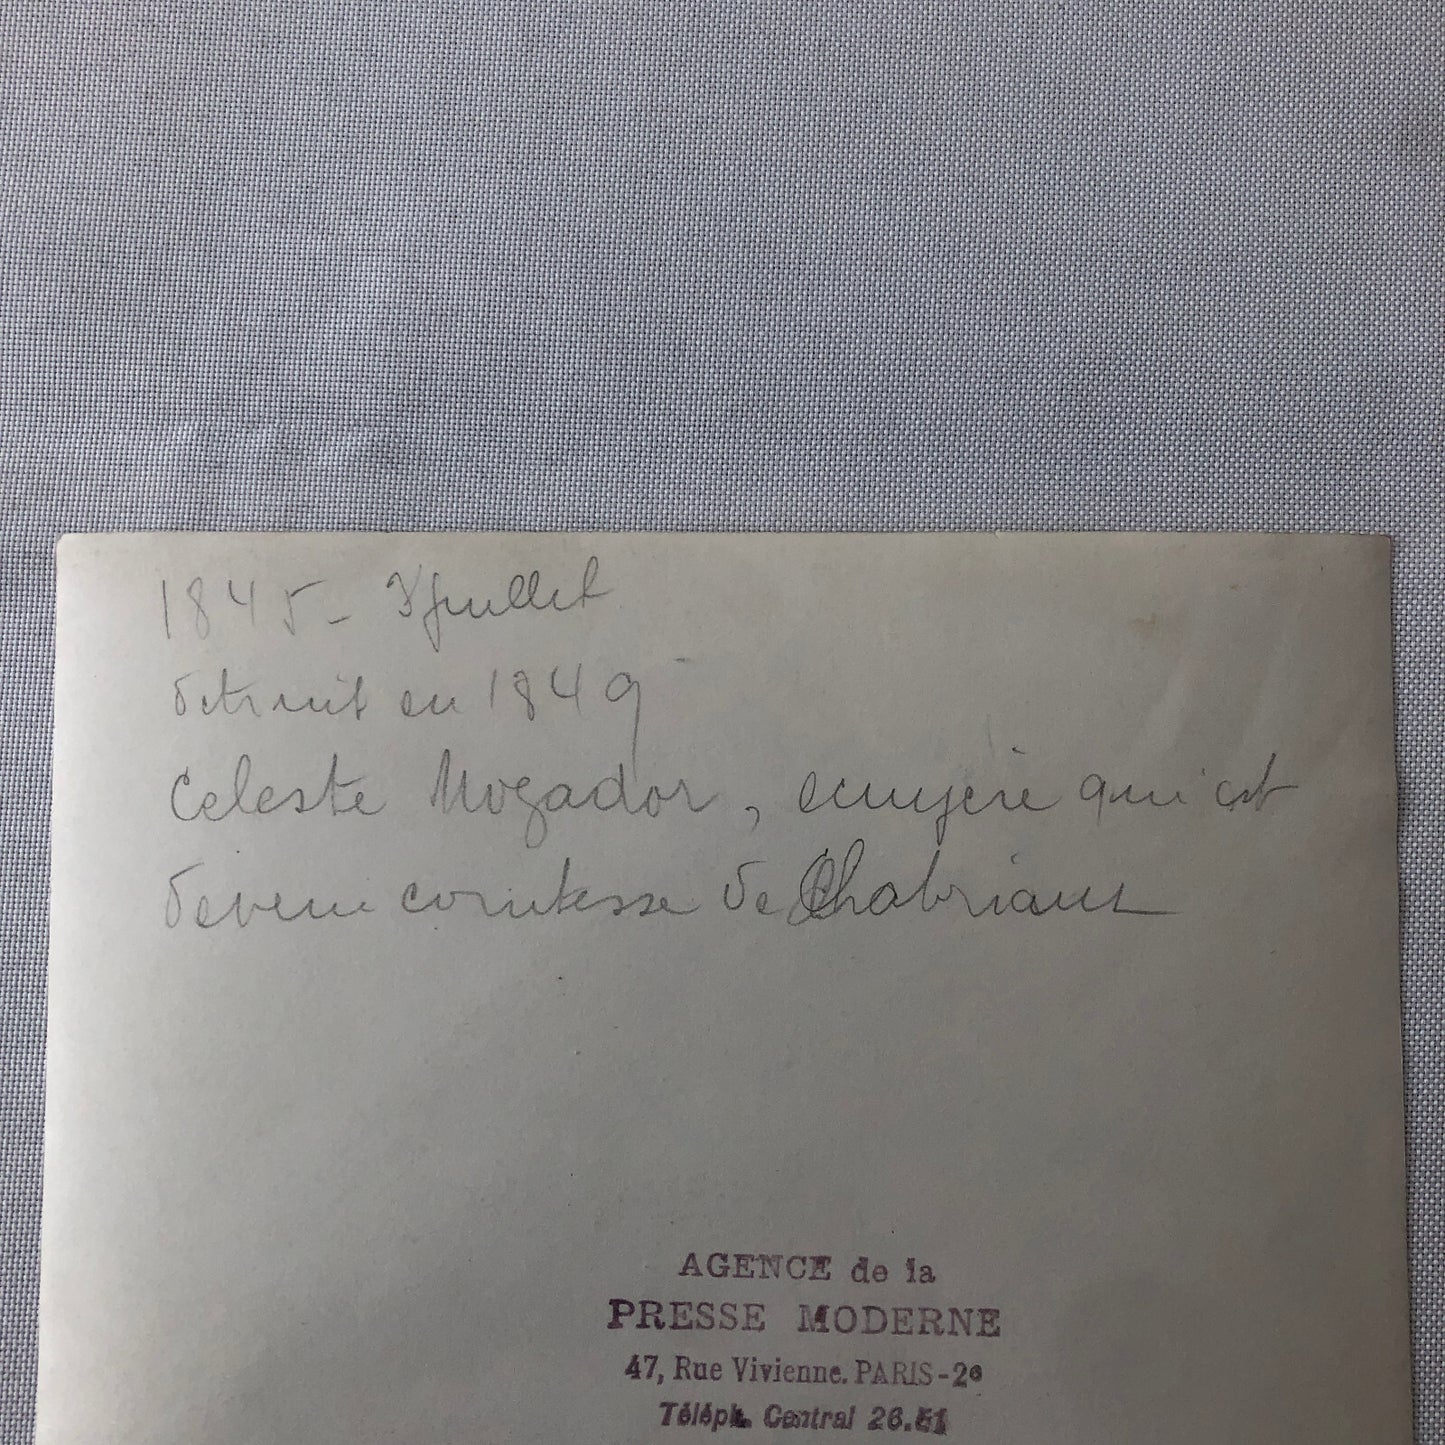 1845 - 3 Juillet
detruit en 1849
Celeste Mogador, ecuyère qui est
devenue comtesse de Chabriant
AGENCE de la
PRESSE MODERNE
47, Rue Vivienne. PARIS-2e
Téléph. Central 26.51